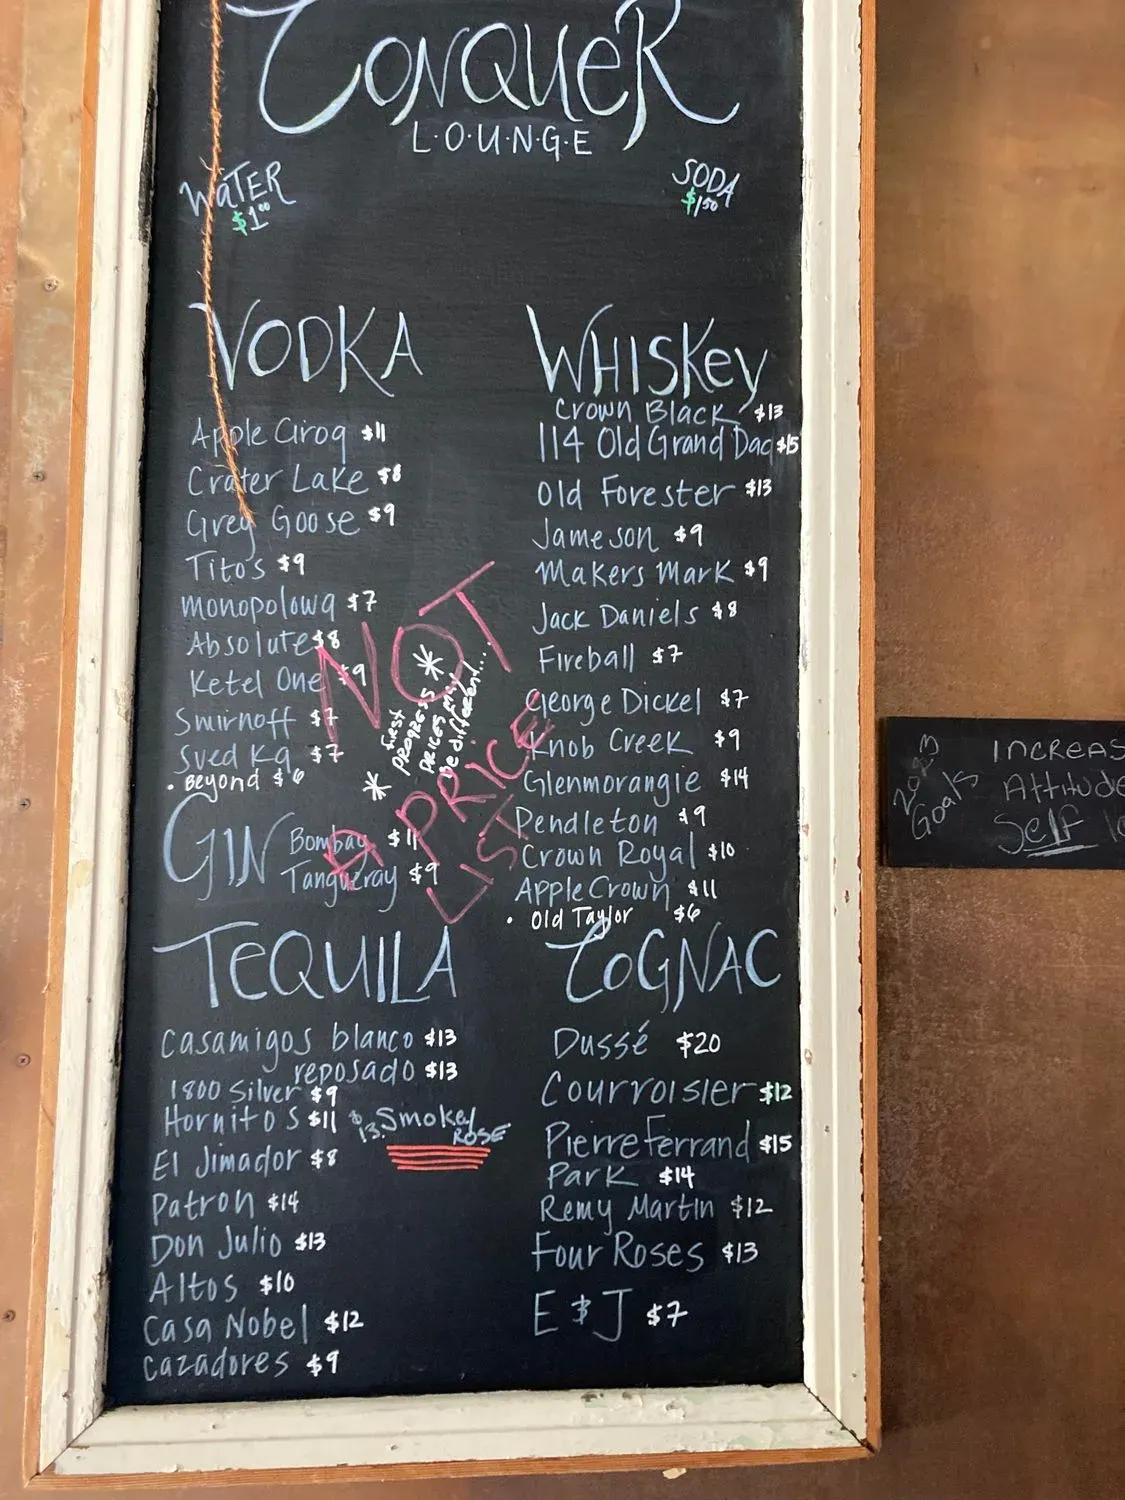 ConqueR
L·O·U·N·G·E
WaTER
$1.00
SODA
$1.50
VODKA
Apple Ciroq $11
Crater Lake $8
Grey Goose $9
Tito's $9
Monopolowa $7
Absolute $8
Ketel One $9
Smirnoff $7
Sved Ka $7
• Beyond $6
GIN
Bombay $11
Tangueray $9
NOT
A PRICE
LIST
* first
progress
prices may
be different.... *
WHISKey
Crown Black $13
114 Old Grand Dad $15
Old Forester $13
Jameson $9
Makers Mark $9
Jack Daniels $8
Fireball $7
George Dickel $7
Knob Creek $9
Glenmorangie $14
Pendleton $9
Crown Royal $10
Apple Crown $11
• Old Taylor $6
TeQUILA
Casamigos blanco $13
reposado $13
1800 Silver $9
Hornitos $11
$13. Smokey
ROSE
El Jimador $8
Patron $14
Don Julio $13
Altos $10
Casa Nobel $12
Cazadores $9
CoGNAC
Dussé $20
Courroisier $12
Pierre Ferrand $15
Park $14
Remy Martin $12
Four Roses $13
E & J $7
2023
Goals
INCREAS
Attitude
Self